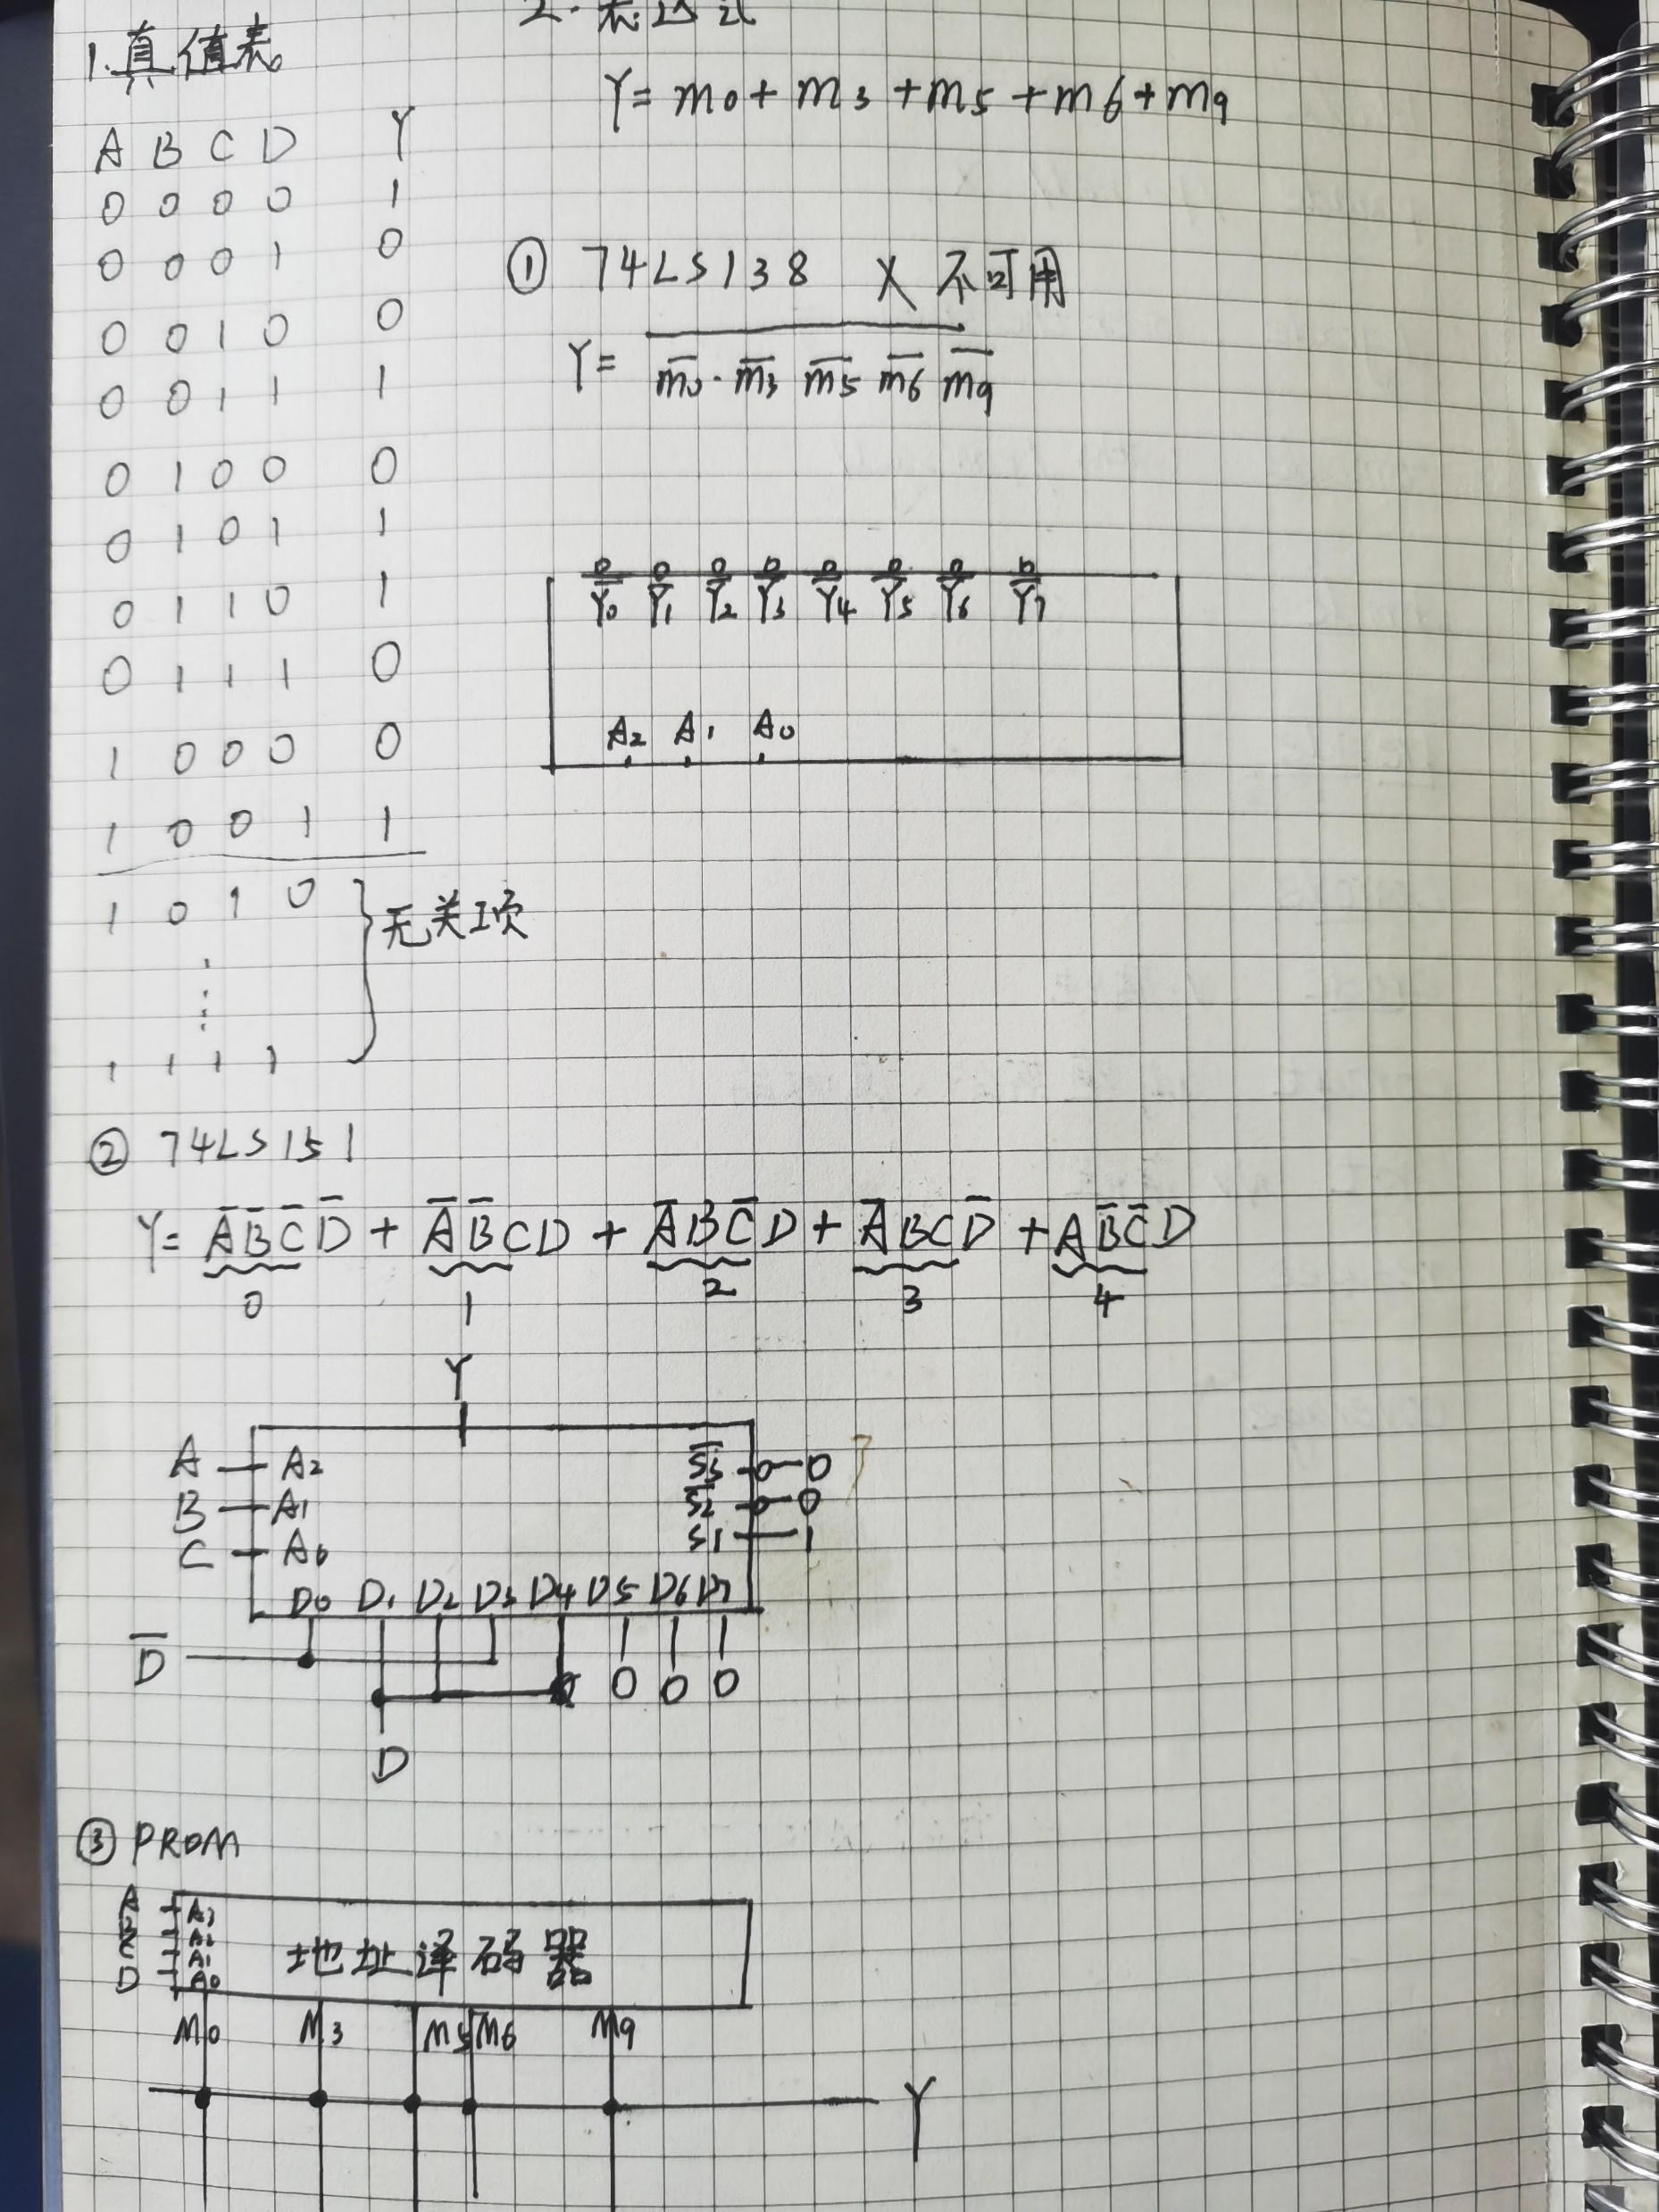 1.真值表
2.表达式
Y= m0 + m3 + m5 + m6 + m9
A B C D Y
0 0 0 0 1
0 0 0 1 0
0 0 1 0 0
0 0 1 1 1
0 1 0 0 0
0 1 0 1 1
0 1 1 0 1
0 1 1 1 0
1 0 0 0 0
1 0 0 1 1
1 0 1 0
⋮
1 1 1 1
无关项
① 74LS138 X 不可用
Y= \overline{\overline{m0}·\overline{m3} \overline{m5} \overline{m6} \overline{m9}}
Y̅0 Y̅1 Y̅2 Y̅3 Y̅4 Y̅5 Y̅6 Y̅7
A2 A1 A0
② 74LS151
Y= A̅B̅C̅D̅ + A̅B̅CD + A̅BC̅D + A̅BCD̅ + AB̅C̅D
0 1 2 3 4
Y
A A2 S̅3 0
B A1 S̅2 0
C A0 S1 1
D0 D1 D2 D3 D4 D5 D6 D7
D̅ 0 0 0
D
③ PROM
A A3
B A2
C A1
D A0
地址译码器
M0 M3 M5 M6 M9
Y